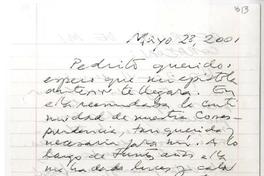 813
Mayo 23, 2001
Pedrito querido:
espero que mi epístola
anterior te llegara. En
ella recomendaba la conti
nuidad de nuestra corres-
pondencia, tan querida y
necesaria para mí. A lo
largo de tantos años ella
me ha dado luces y calor